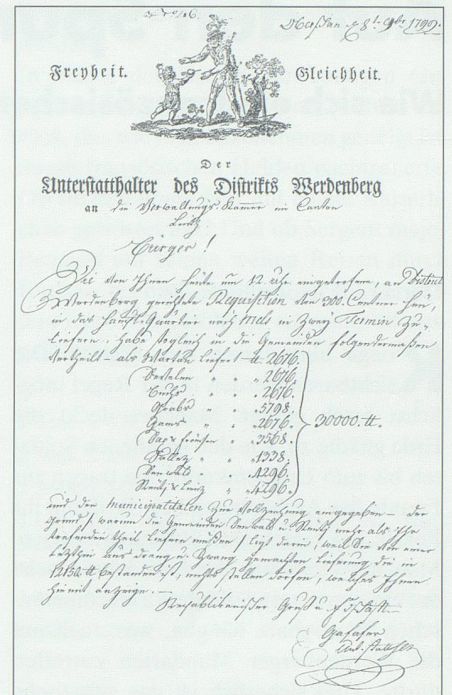 Freyheit. Gleichheit.
Der
Unterstatthalter des Distrikts Werdenberg
an die Verwaltungs Kammer im Canton
Linth
Burger!
Die von Ihnen heute um 12 Uhr eingetrofene, an District
Werdenberg gerichte Requisition von 300. Centner Heu,
in das Haupt-Quartier nach Mels in Zwey Termin Zu-
liefern, habe sogleich in die Gemeinden folgendermaßen
Vertheilt - als Wartau liefert ℔ 2676.
Sevelen " 2676.
Buchs " " 2676.
Grabs " " 5798.
Gams " " 2676.
Sax & Frümsen " 3568.
" 1338.
Sennwald " 4296.
" 4296.
30000. ℔.
und den Municipalitäten Zur Vollziehung eingegeben - der
Grund / warum die Gemeinden Sennwald u. mehr als Ihr
treffenden theil liefern müßen / ligt darin, weil Sie von einer
letzthin aus drang u. Zwang gemachten Lieferung die in
12132 ℔ bestanden ist, nichts stellen dorften, welches Ihnen
hiemit anzeige. -
Republikanischer Gruß u.